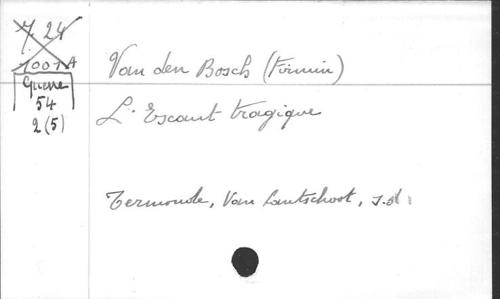 7.24
1001A
Guerre
54
2(5)
Van den Bosch (Firmin)
L'Escaut tragique
Termonde, Van Lantschoot, s.d.